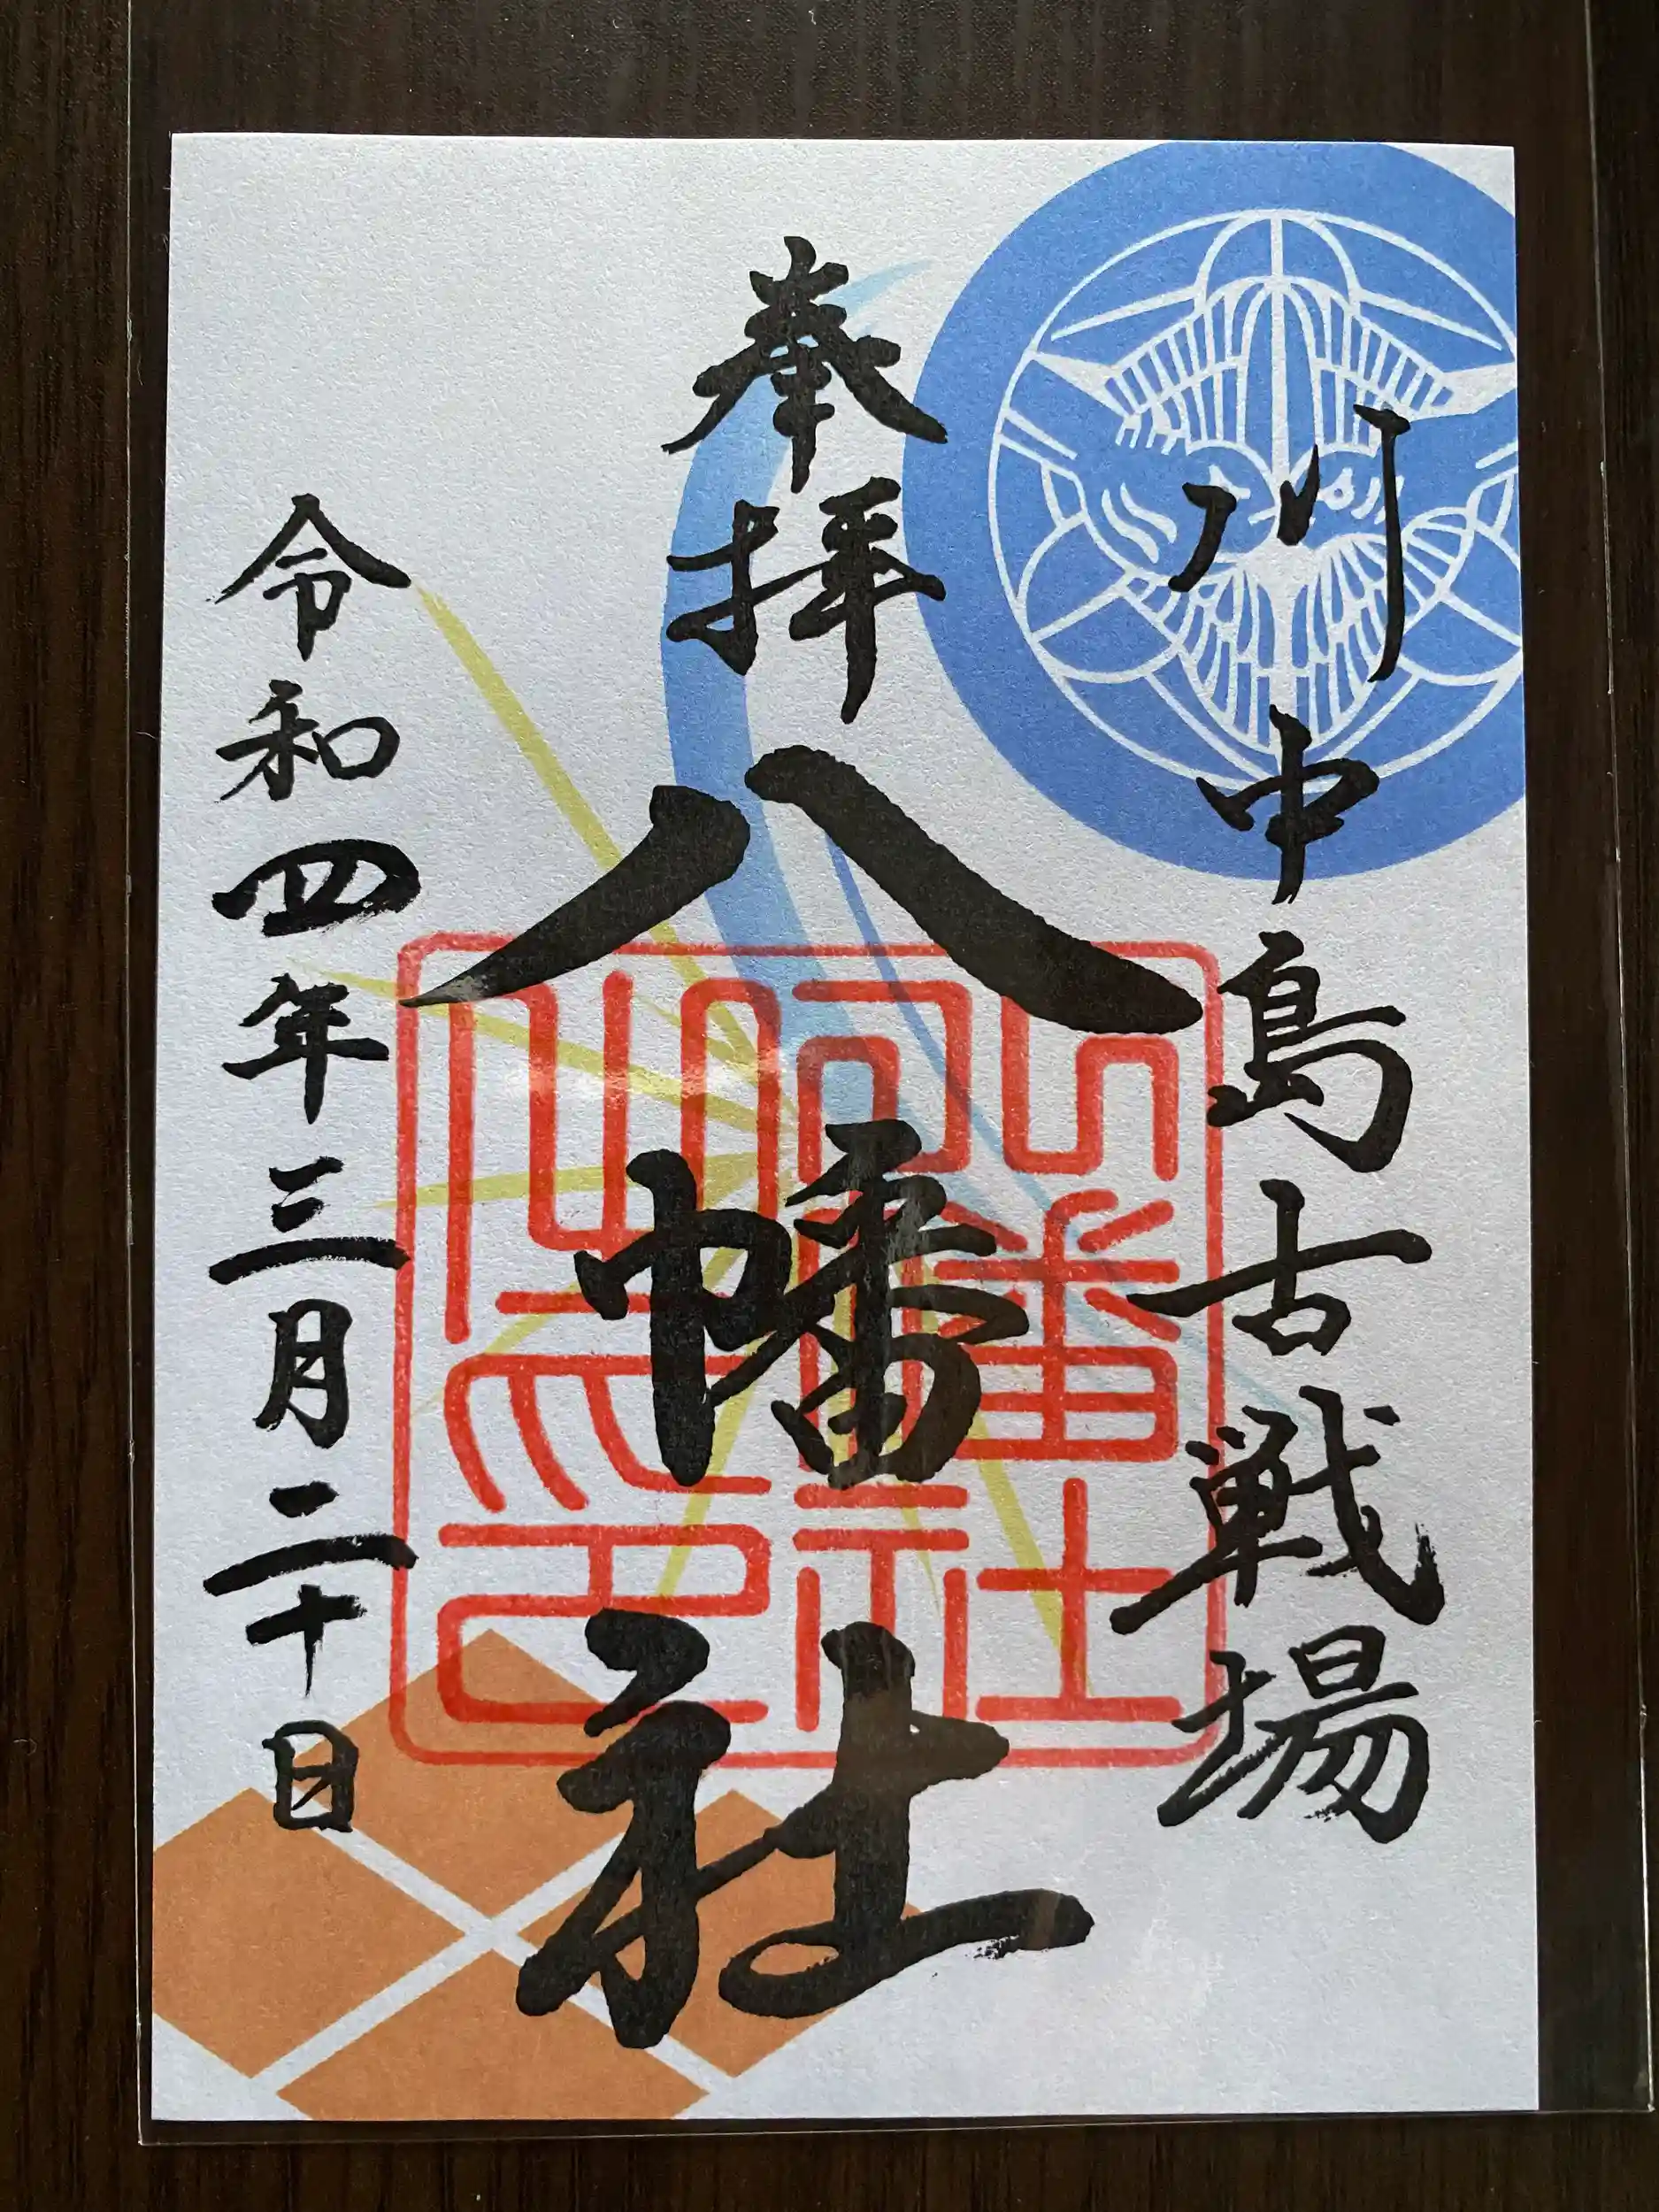 川中島古戦場
奉拝
八幡社
令和四年三月二十日
八幡社